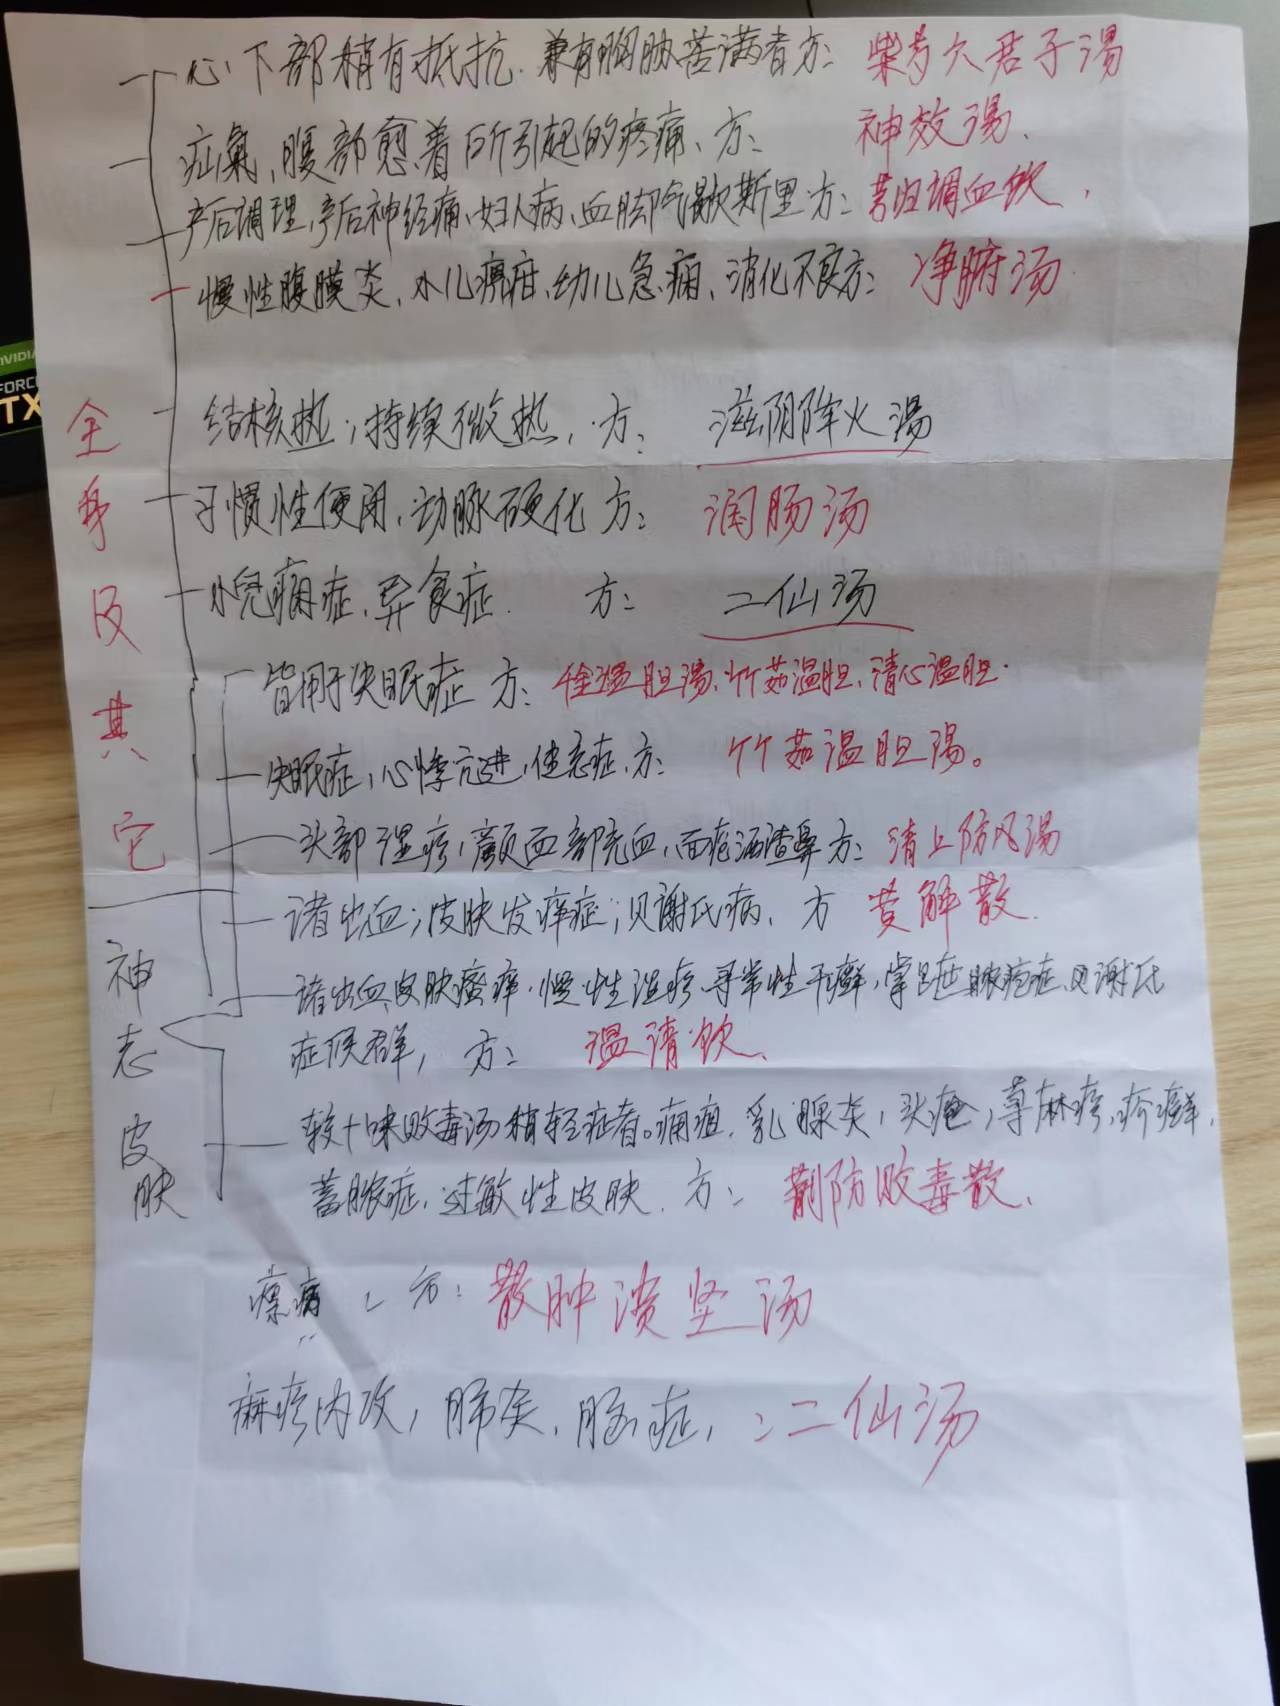 心下部稍有抵抗.兼有胸胁苦满者方: 柴芍六君子湯
疝氣,腹部愈着所引起的疼痛、方: 神效湯.
产后调理,产后神经痛,妇人病,血脚气歇斯里方: 芎归调血饮,
慢性腹膜炎,小儿癖疳,幼儿急痫,消化不良方: 净腑汤
结核热;持续微热, 方: 滋阴降火湯
习惯性便闭,动脉硬化方: 润肠汤
小兒痫症,弃食症. 方: 二仙汤
皆用于失眠症 方: 温胆湯,竹茹温胆,清心温胆.
失眠症,心悸亢进,症,方: 竹茹温胆湯。
头部湿疹,颜面部充血,面疱酒渣鼻方: 清上防风湯
诸出血;皮肤发痒症;贝谢氏病、方 黄解散.
诸出血,皮肤瘙痒,慢性湿疹,寻常性干癣,掌蹠脓疱症,贝谢氏
症候群, 方: 温清饮、
较十味败毒汤稍轻症者。痈疽,乳腺炎,头疮,荨麻疹,疥癣,
蓄脓症,过敏性皮肤.方: 荆防败毒散、
方: 散肿溃坚汤
麻疹内攻,肺炎,脑症,:二仙汤
全身及其它
神志皮肤
NVIDIA
FORC
TX